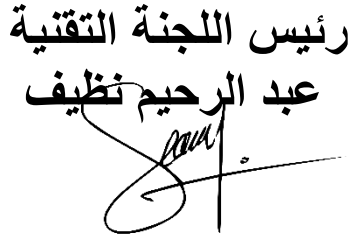 رئيس اللجنة التقنية
عبد الرحيم نظيف